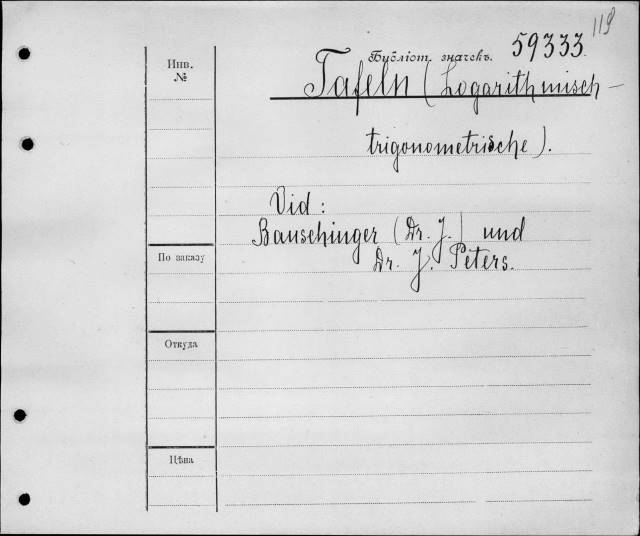 119
Бубліот. значекъ. 59333.
Инв.
№
Tafeln (Logarithmisch-
trigonometrische).
Vid:
Bauschinger (Dr. J.) und
Dr. J. Peters.
По заказу
Откуда
Цѣна